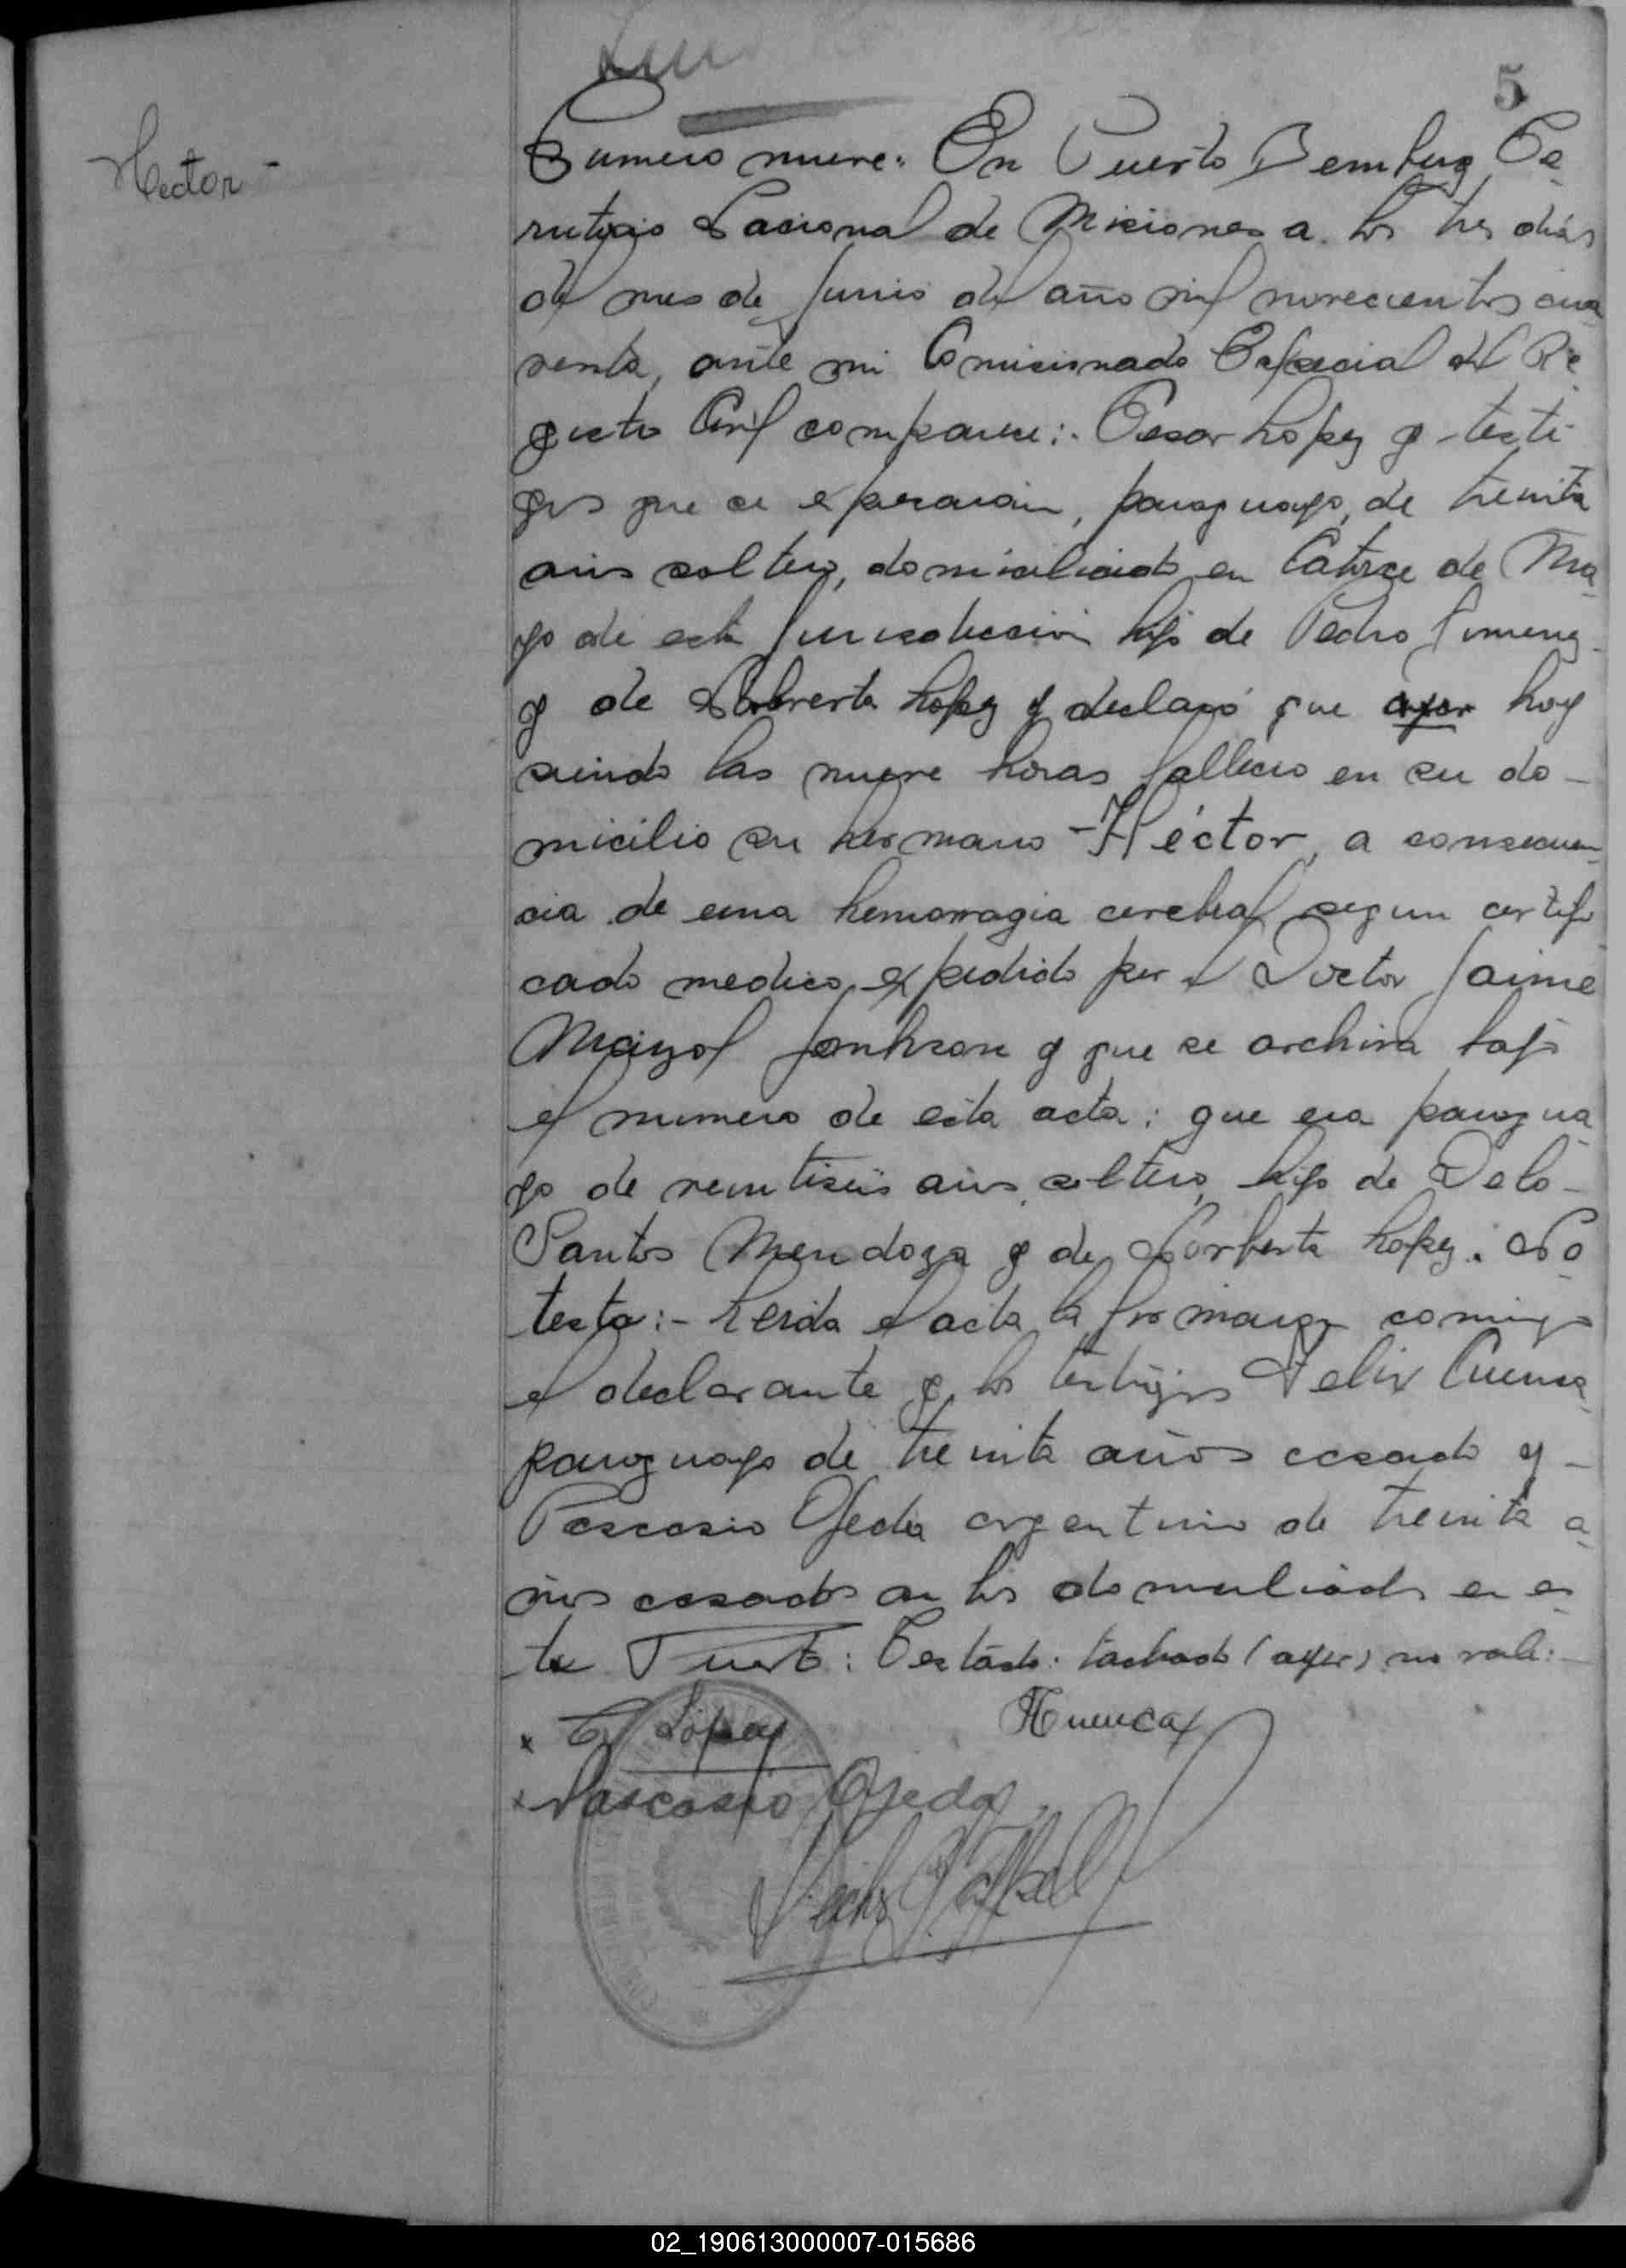 5
Hector -
Numero nueve. En Puerto Bemberg Te-
rritorio Nacional de Misiones a los tres dias
del mes de Junio del año mil novecientos cua
renta, ante mi Comisionado Especial del Re
gistro Civil comparece:. Cesar Lopez y testi-
gos que se expresarán, paraguayo, de treinta
años soltero, domiciliado en Catorce de Ma-
yo de esta Jurisdiccion hijo de Pedro Jimenez
y de Norberta Lopez y declaró que ayer hoy
siendo las nueve horas fallecio en su do-
micilio su hermano - Héctor, a consecuen-
cia de una hemorragia cerebral segun certifi
cado medico expedido por el Doctor Jaime
y que se archiva bajo
el numero de esta acta: que era paragua
yo de veintiseis años soltero, hijo de Delo-
Santos Mendoza y de Norberta Lopez. No
testo:- Leida el acta la firmaron conmigo
el declarante y los testigos Felix Cuenca
paraguayo de treinta años casado y -
Pascasio Ojeda argentino de treinta a
ños casado ambos domiciliados en es
te Puerto: Testado: tachado (ayer) no vale:-
x C Lopez
FCuenca
x Pascasio Ojeda
02_190613000007-015686